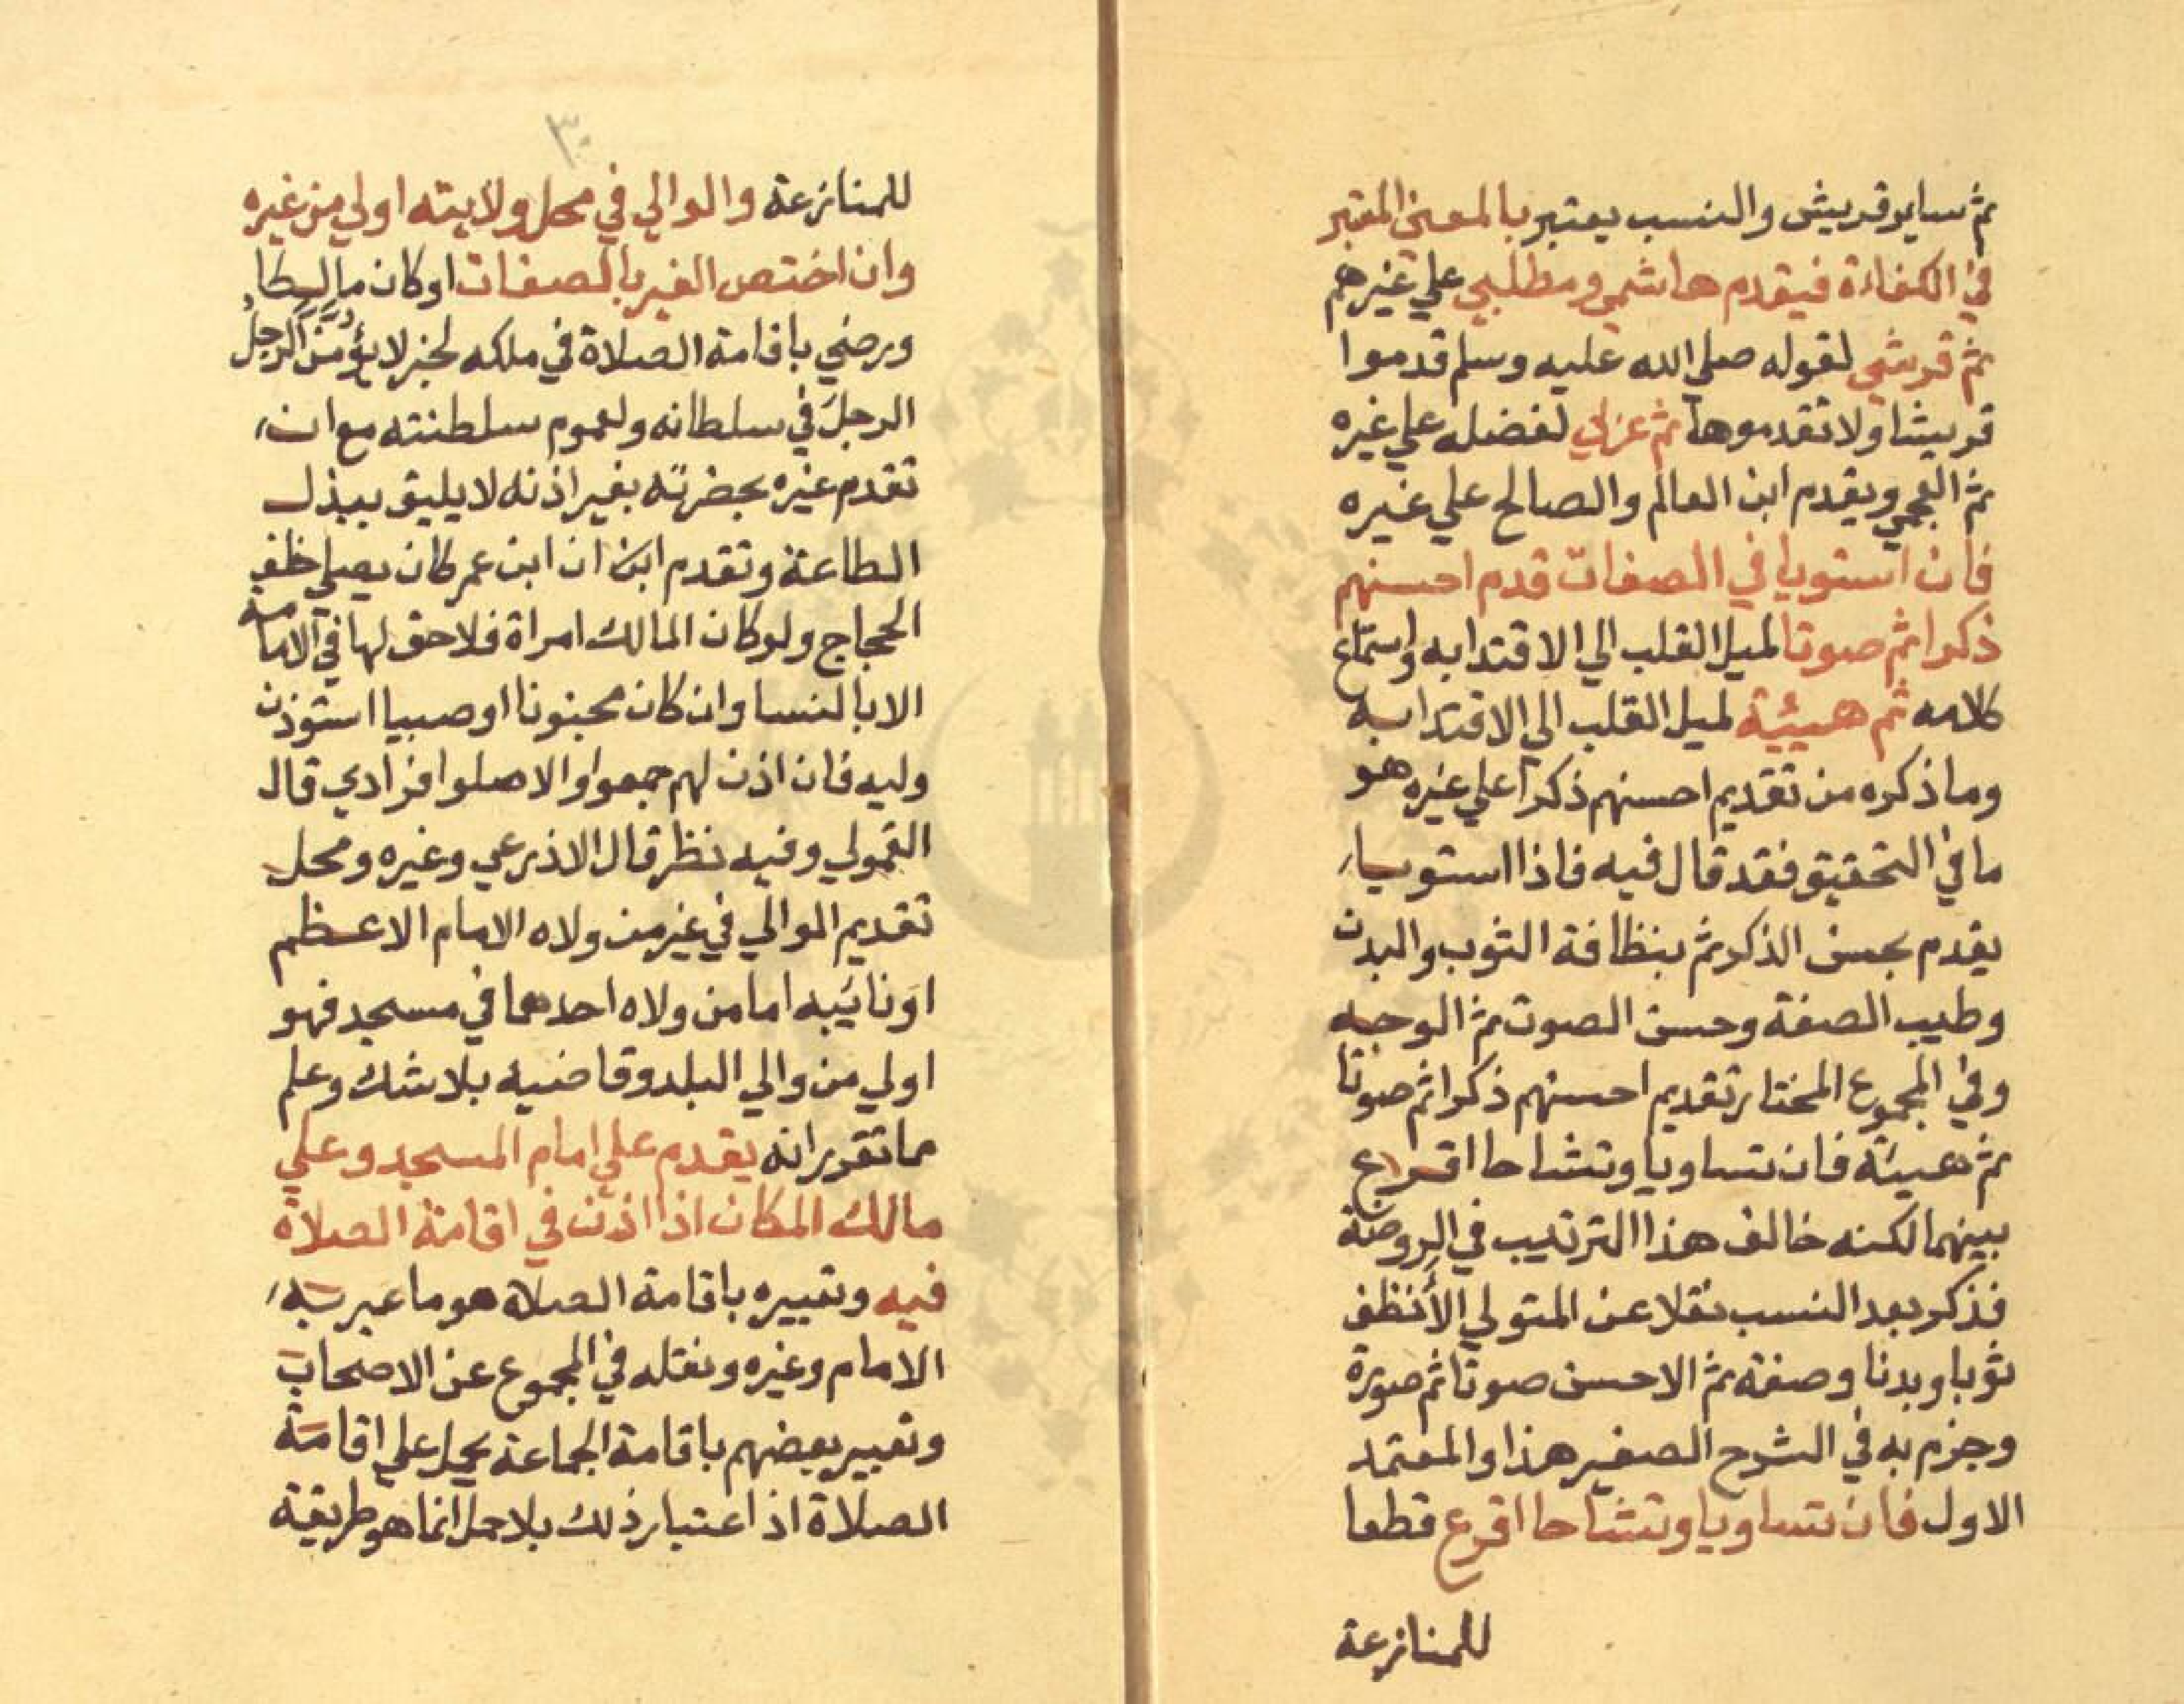 ثم ساير قريش والنسب يعتبر بالمعنى المعتبر
في الكفاءة فيقدم هاشمي ومطلبي علي غيرهم
ثم قرشي لقوله صلى الله عليه وسلم قدموا
قريشا ولا تقدموها ثم عربي لفضله علي غيره
ثم العجمي ويقدم ابن العالم والصالح علي غيره
فان استويا في الصفات قدم احسنهم
ذكرا ثم صوتا لميل القلب الي الاقتدا به واستماع
كلامه ثم هيئة لميل القلب الي الاقتدا به
وما ذكره من تقديم احسنهم ذكرا علي غيره هو
ما في التحقيق فقد قال فيه فاذا استويا
يقدم بحسن الذكر ثم بنظافة الثوب والبدن
وطيب الصنعة وحسن الصوت ثم الوجه
وفي المجموع المختار تقديم احسنهم ذكرا ثم صوتا
ثم هيئة فان تساويا وتشاحا اقرع
بينهما لكنه خالف هذا الترتيب في الروضة
فذكر بعد النسب نقلا عن المتولي الأنظف
ثوبا وبدنا وصنعة ثم الاحسن صوتا ثم صورة
وجزم به في الشرح الصغير هذا والمعتمد
الاول فان تساويا وتشاحا اقرع قطعا
للمنازعة
٣٠
للمنازعة والوالي في محل ولايته اولي من غيره
وان اختص الغير بالصفات او كان مالكا
ورضي باقامة الصلاة في ملكه لخبر لا يؤمن الرجل
الرجل في سلطانه ولعموم سلطنته مع ان
تقدم غيره بحضرته بغير اذنه لا يليق ببذل
الطاعة وتقدم ان ابن عمر كان يصلي خلف
الحجاج ولو كان المالك امراة فلا حق لها في الامامة
الا بالنسا وان كان مجنونا او صبيا استوذن
وليه فان اذن لهم جمعوا والا صلوا فرادي قال
القمولي وفيه نظر قال الاذرعي وغيره ومحل
تقديم الوالي في غير من ولاه الامام الاعظم
او نائبه اما من ولاه احدهما في مسجد فهو
اولي من والي البلد وقاضيه بلا شك وعلم
مما تقرر انه يقدم علي امام المسجد وعلي
مالك المكان اذا اذن في اقامة الصلاة
فيه وتعبيره باقامة الصلاة هو ما عبر به
الامام وغيره ونقله في المجموع عن الاصحاب
وتعبير بعضهم باقامة الجماعة يحمل علي اقامة
الصلاة اذ اعتبار ذلك بلا حمل انما هو طريقة